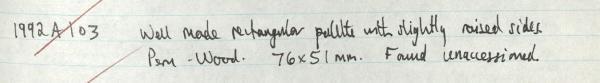 1992 A 103 Well made rectangular palette with slightly raised sides.
Peru - Wood. 76 x 51 mm. Found unaccessioned